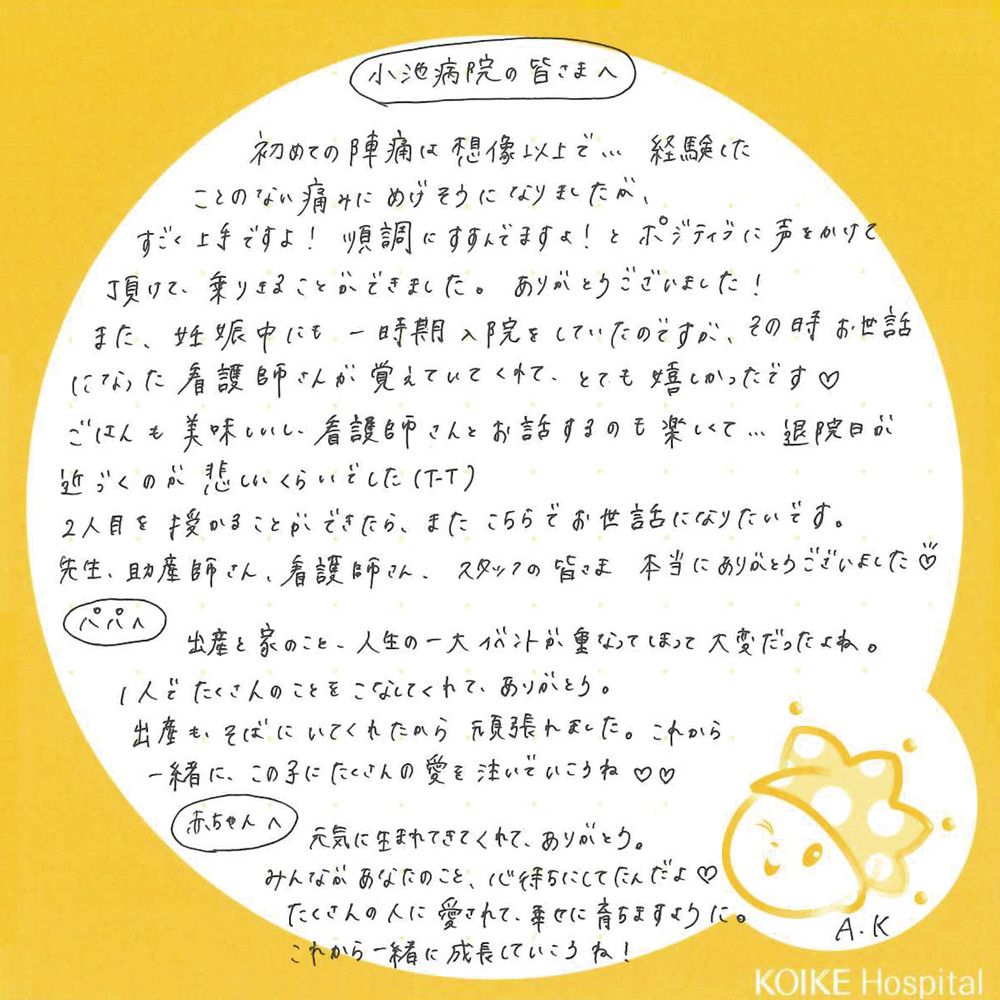 小池病院の皆さまへ
初めての陣痛は想像以上で… 経験した
ことのない痛みにめげそうになりましたが、
すごく上手ですよ！順調にすすんでますよ！とポジティブに声をかけて
頂けて、乗りきることができました。ありがとうございました！
また、妊娠中にも一時期入院をしていたのですが、その時お世話
になった看護師さんが覚えていてくれて、とても嬉しかったです♡
ごはんも美味しいし、看護師さんとお話するのも楽しくて… 退院日が
近づくのが悲しいくらいでした(T-T)
2人目を授かることができたら、またこちらでお世話になりたいです。
先生、助産師さん、看護師さん、スタッフの皆さま 本当にありがとうございました♡
パパへ
出産と家のこと、人生の一大イベントが重なってしまって大変だったよね。
1人でたくさんのことをこなしてくれて、ありがとう。
出産も、そばにいてくれたから頑張れました。これから
一緒に、この子にたくさんの愛を注いでいこうね♡♡
赤ちゃんへ
元気に生まれてきてくれて、ありがとう。
みんながあなたのこと、心待ちにしてたんだよ♡
たくさんの人に愛されて、幸せに育ちますように。
これから一緒に成長していこうね！
A.K
KOIKE Hospital